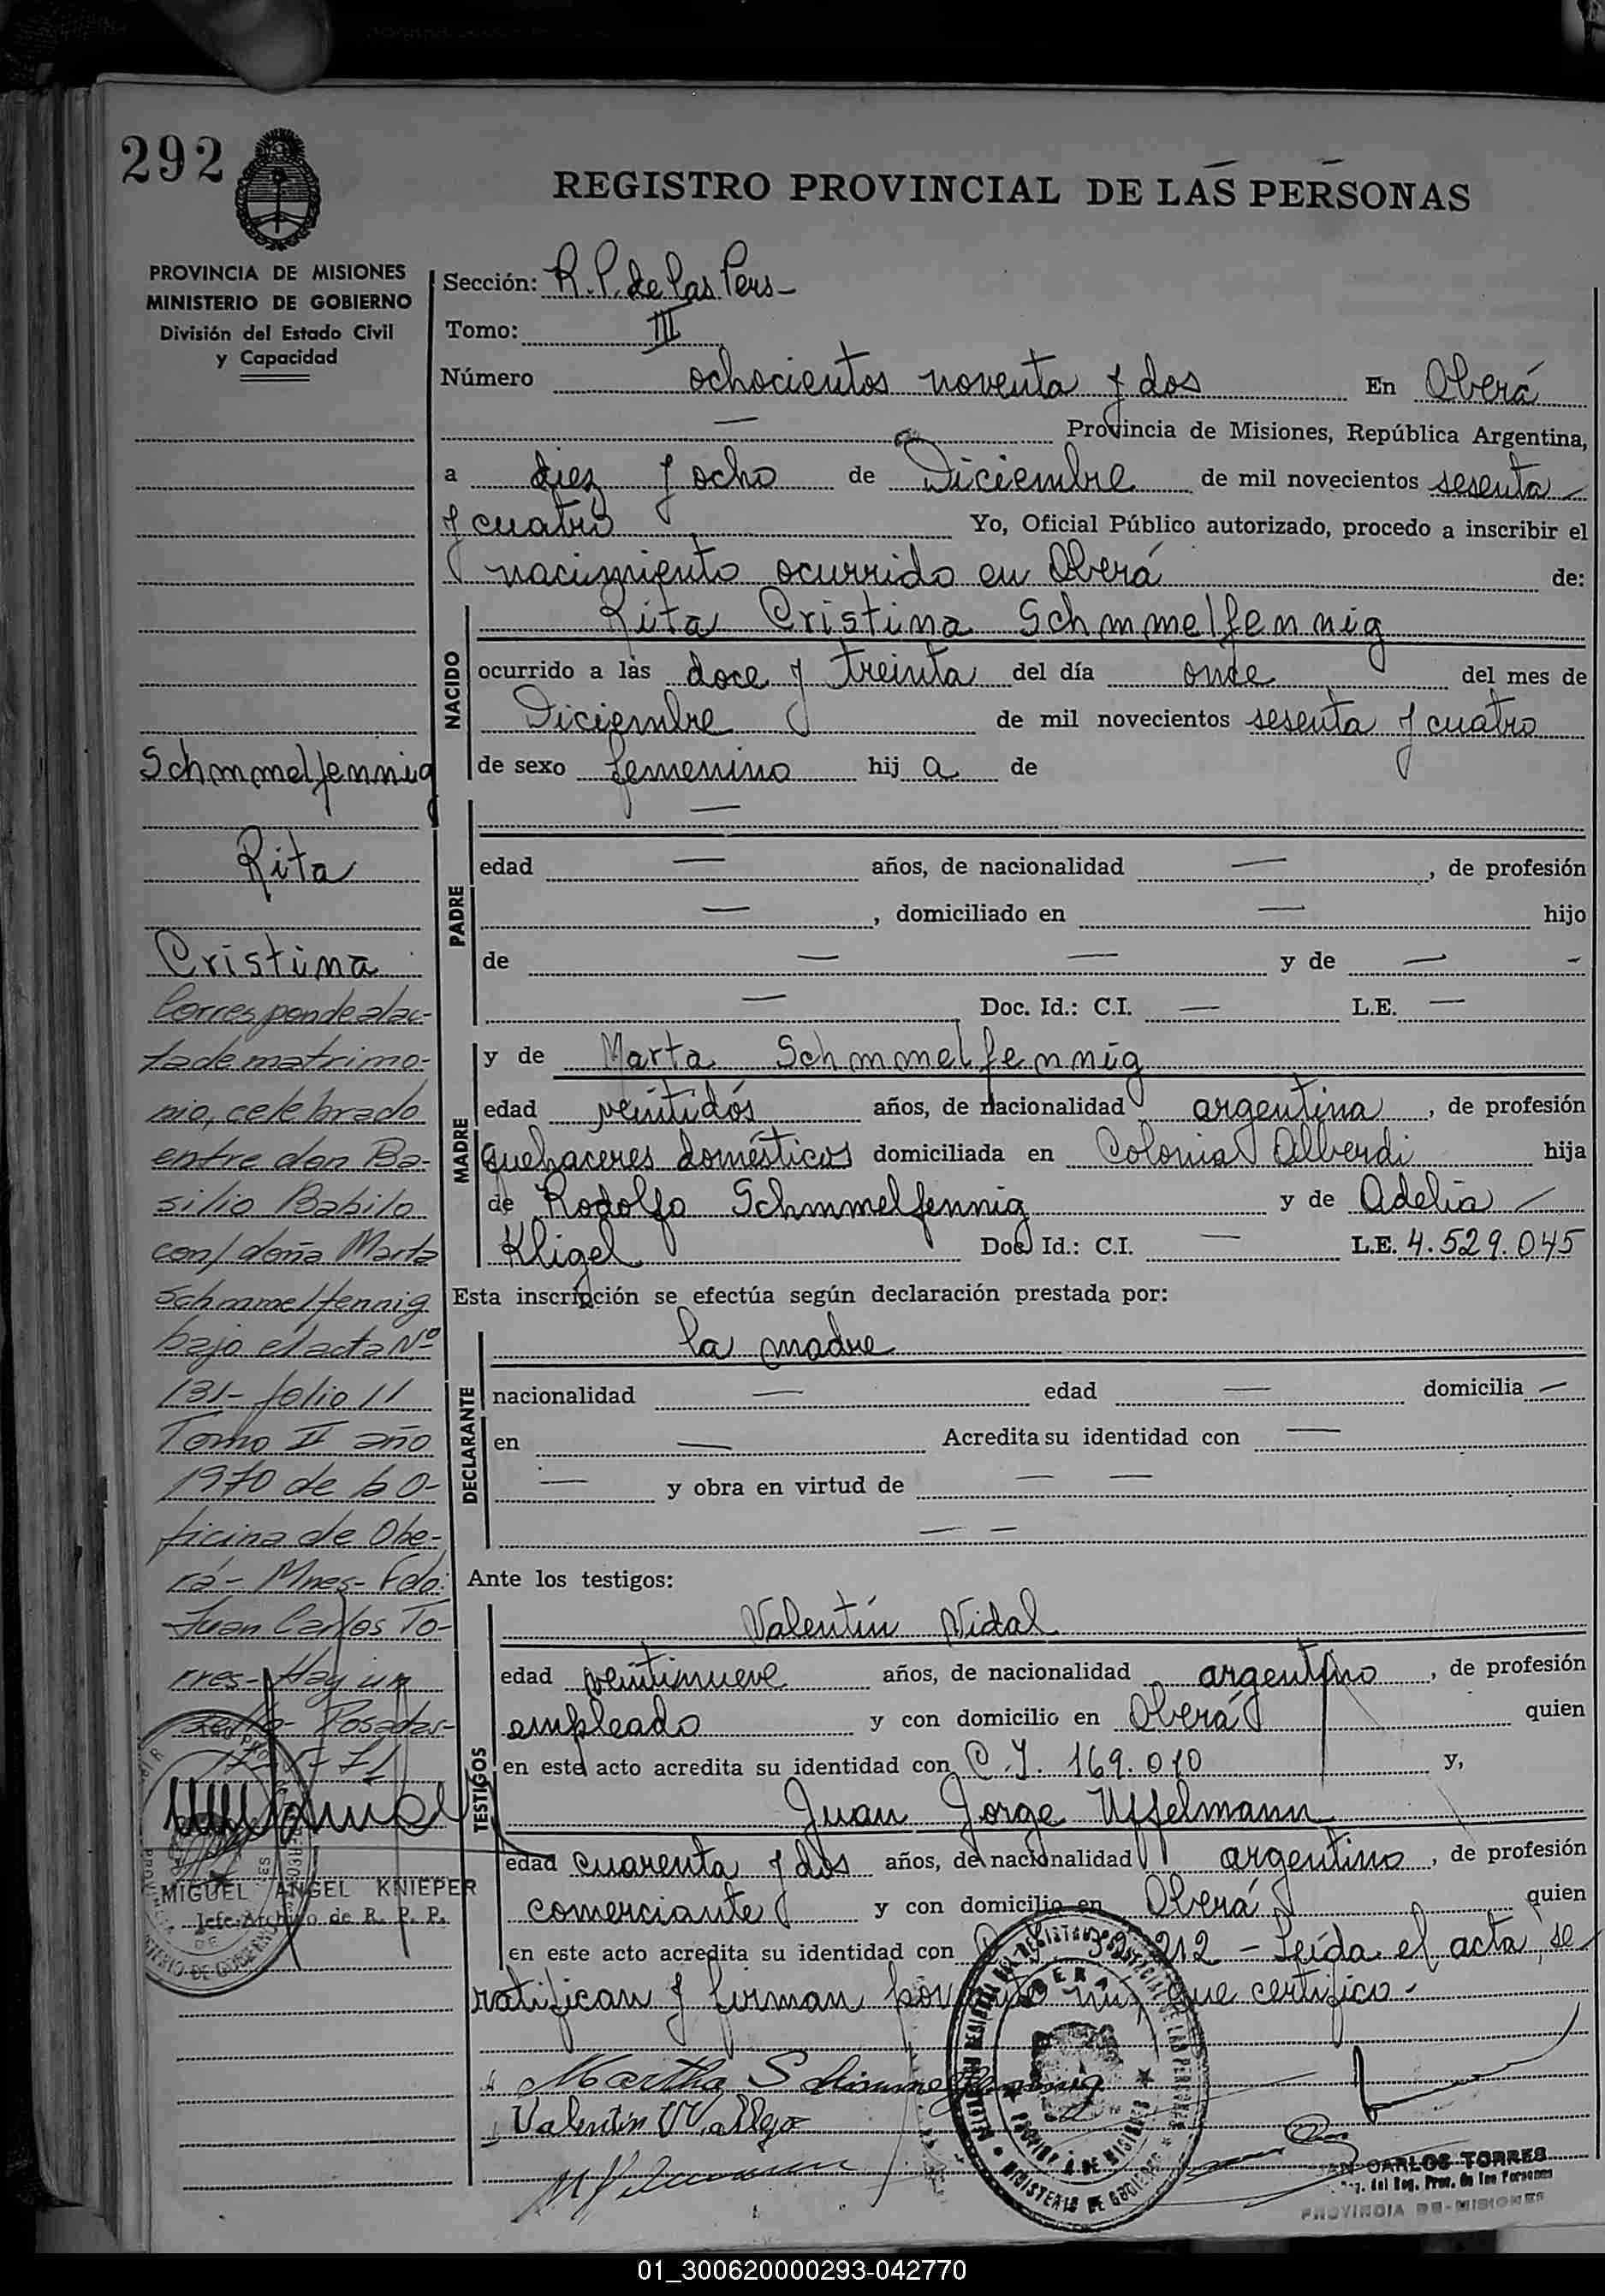 292
REGISTRO PROVINCIAL DE LAS PERSONAS
PROVINCIA DE MISIONES
MINISTERIO DE GOBIERNO
División del Estado Civil
y Capacidad
Sección: R.P. de las Pers-
Tomo: III
Número ochocientos noventa y dos En Oberá
— Provincia de Misiones, República Argentina,
a diez y ocho de Diciembre de mil novecientos sesenta
y cuatro Yo, Oficial Público autorizado, procedo a inscribir el
nacimiento ocurrido en Oberá de:
NACIDO
Rita Cristina Schmmelfennig
ocurrido a las doce y treinta del día once del mes de
Diciembre de mil novecientos sesenta y cuatro
de sexo femenino hij a de
PADRE
—
edad — años, de nacionalidad —, de profesión
—, domiciliado en — hijo
de — — y de — -
— Doc. Id.: C.I. — L.E. —
MADRE
y de Marta Schmmelfennig
edad veintidós años, de nacionalidad argentina, de profesión
quehaceres domésticos domiciliada en Colonia Alberdi hija
de Rodolfo Schmmelfennig y de Adelia
Kligel Doc. Id.: C.I. — L.E. 4.529.045
Esta inscripción se efectúa según declaración prestada por:
DECLARANTE
la madre
nacionalidad — edad — domicilia —
en — Acredita su identidad con —
— y obra en virtud de — —
— —
Ante los testigos:
TESTIGOS
Valentín Vidal
edad veintinueve años, de nacionalidad argentino, de profesión
empleado y con domicilio en Oberá quien
en este acto acredita su identidad con C.I. 169.010 y,
Juan Jorge Uffelmann
edad cuarenta y dos años, de nacionalidad argentino, de profesión
comerciante y con domicilio en Oberá quien
en este acto acredita su identidad con 212 - Leída el acta, se
ratifican y firman por ante mi, que certifico.-
Martha Schimmelfennig
Valentin
CARLOS TORRES
del Reg. Prov. de las Personas
PROVINCIA DE MISIONES
OBERA
PROVINCIA DE MISIONES
MINISTERIO DE GOBIERNO
Schmmelfennig
Rita
Cristina
Corresponde al ac-
ta de matrimo-
nio, celebrado
entre don Ba-
silio Babilo
con/ doña Marta
Schmmelfennig
bajo el acta Nº
131- folio 11
Tomo II año
1970 de la O-
ficina de Obe-
rá- Mnes- Fdo:
Juan Carlos To-
rres- Hay un
sello- Posadas-
MIGUEL ANGEL KNIEPER
Jefe Archivo de R. P. P.
01_300620000293-042770